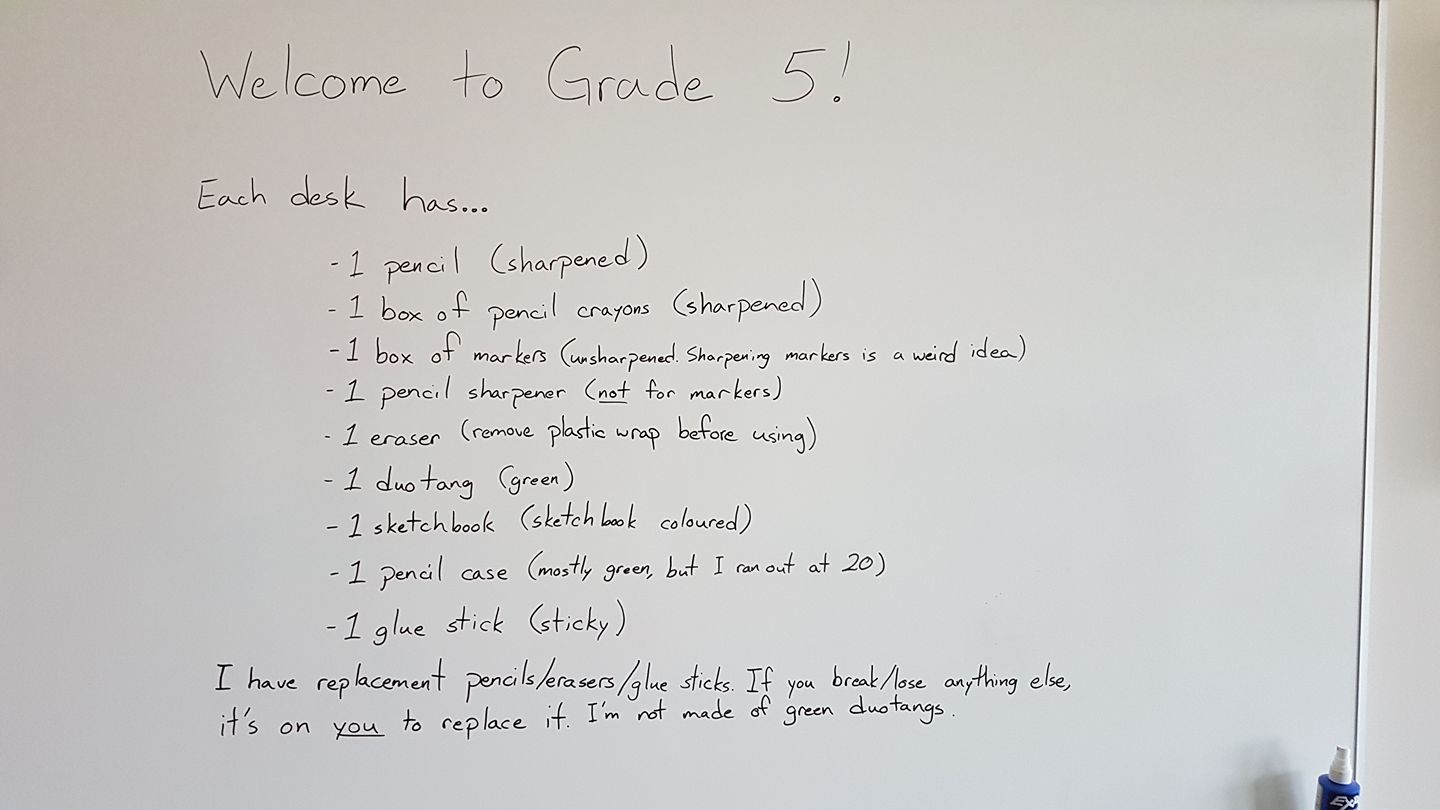 Welcome to Grade 5!
Each desk has...
- 1 pencil (sharpened)
- 1 box of pencil crayons (sharpened)
- 1 box of markers (unsharpened. Sharpening markers is a weird idea)
- 1 pencil sharpener (not for markers)
- 1 eraser (remove plastic wrap before using)
- 1 duotang (green)
- 1 sketchbook (sketchbook coloured)
- 1 pencil case (mostly green, but I ran out at 20)
- 1 glue stick (sticky)
I have replacement pencils/erasers/glue sticks. If you break/lose anything else,
it's on you to replace it. I'm not made of green duotangs.